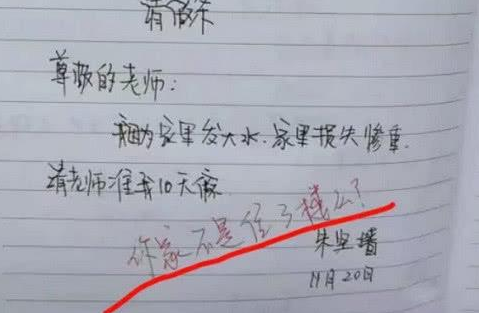 请假条
尊敬的老师：
因为家里发大水.家里损失惨重.
请老师准我10天假
你家不是住3楼么？
朱坚墙
11月20日